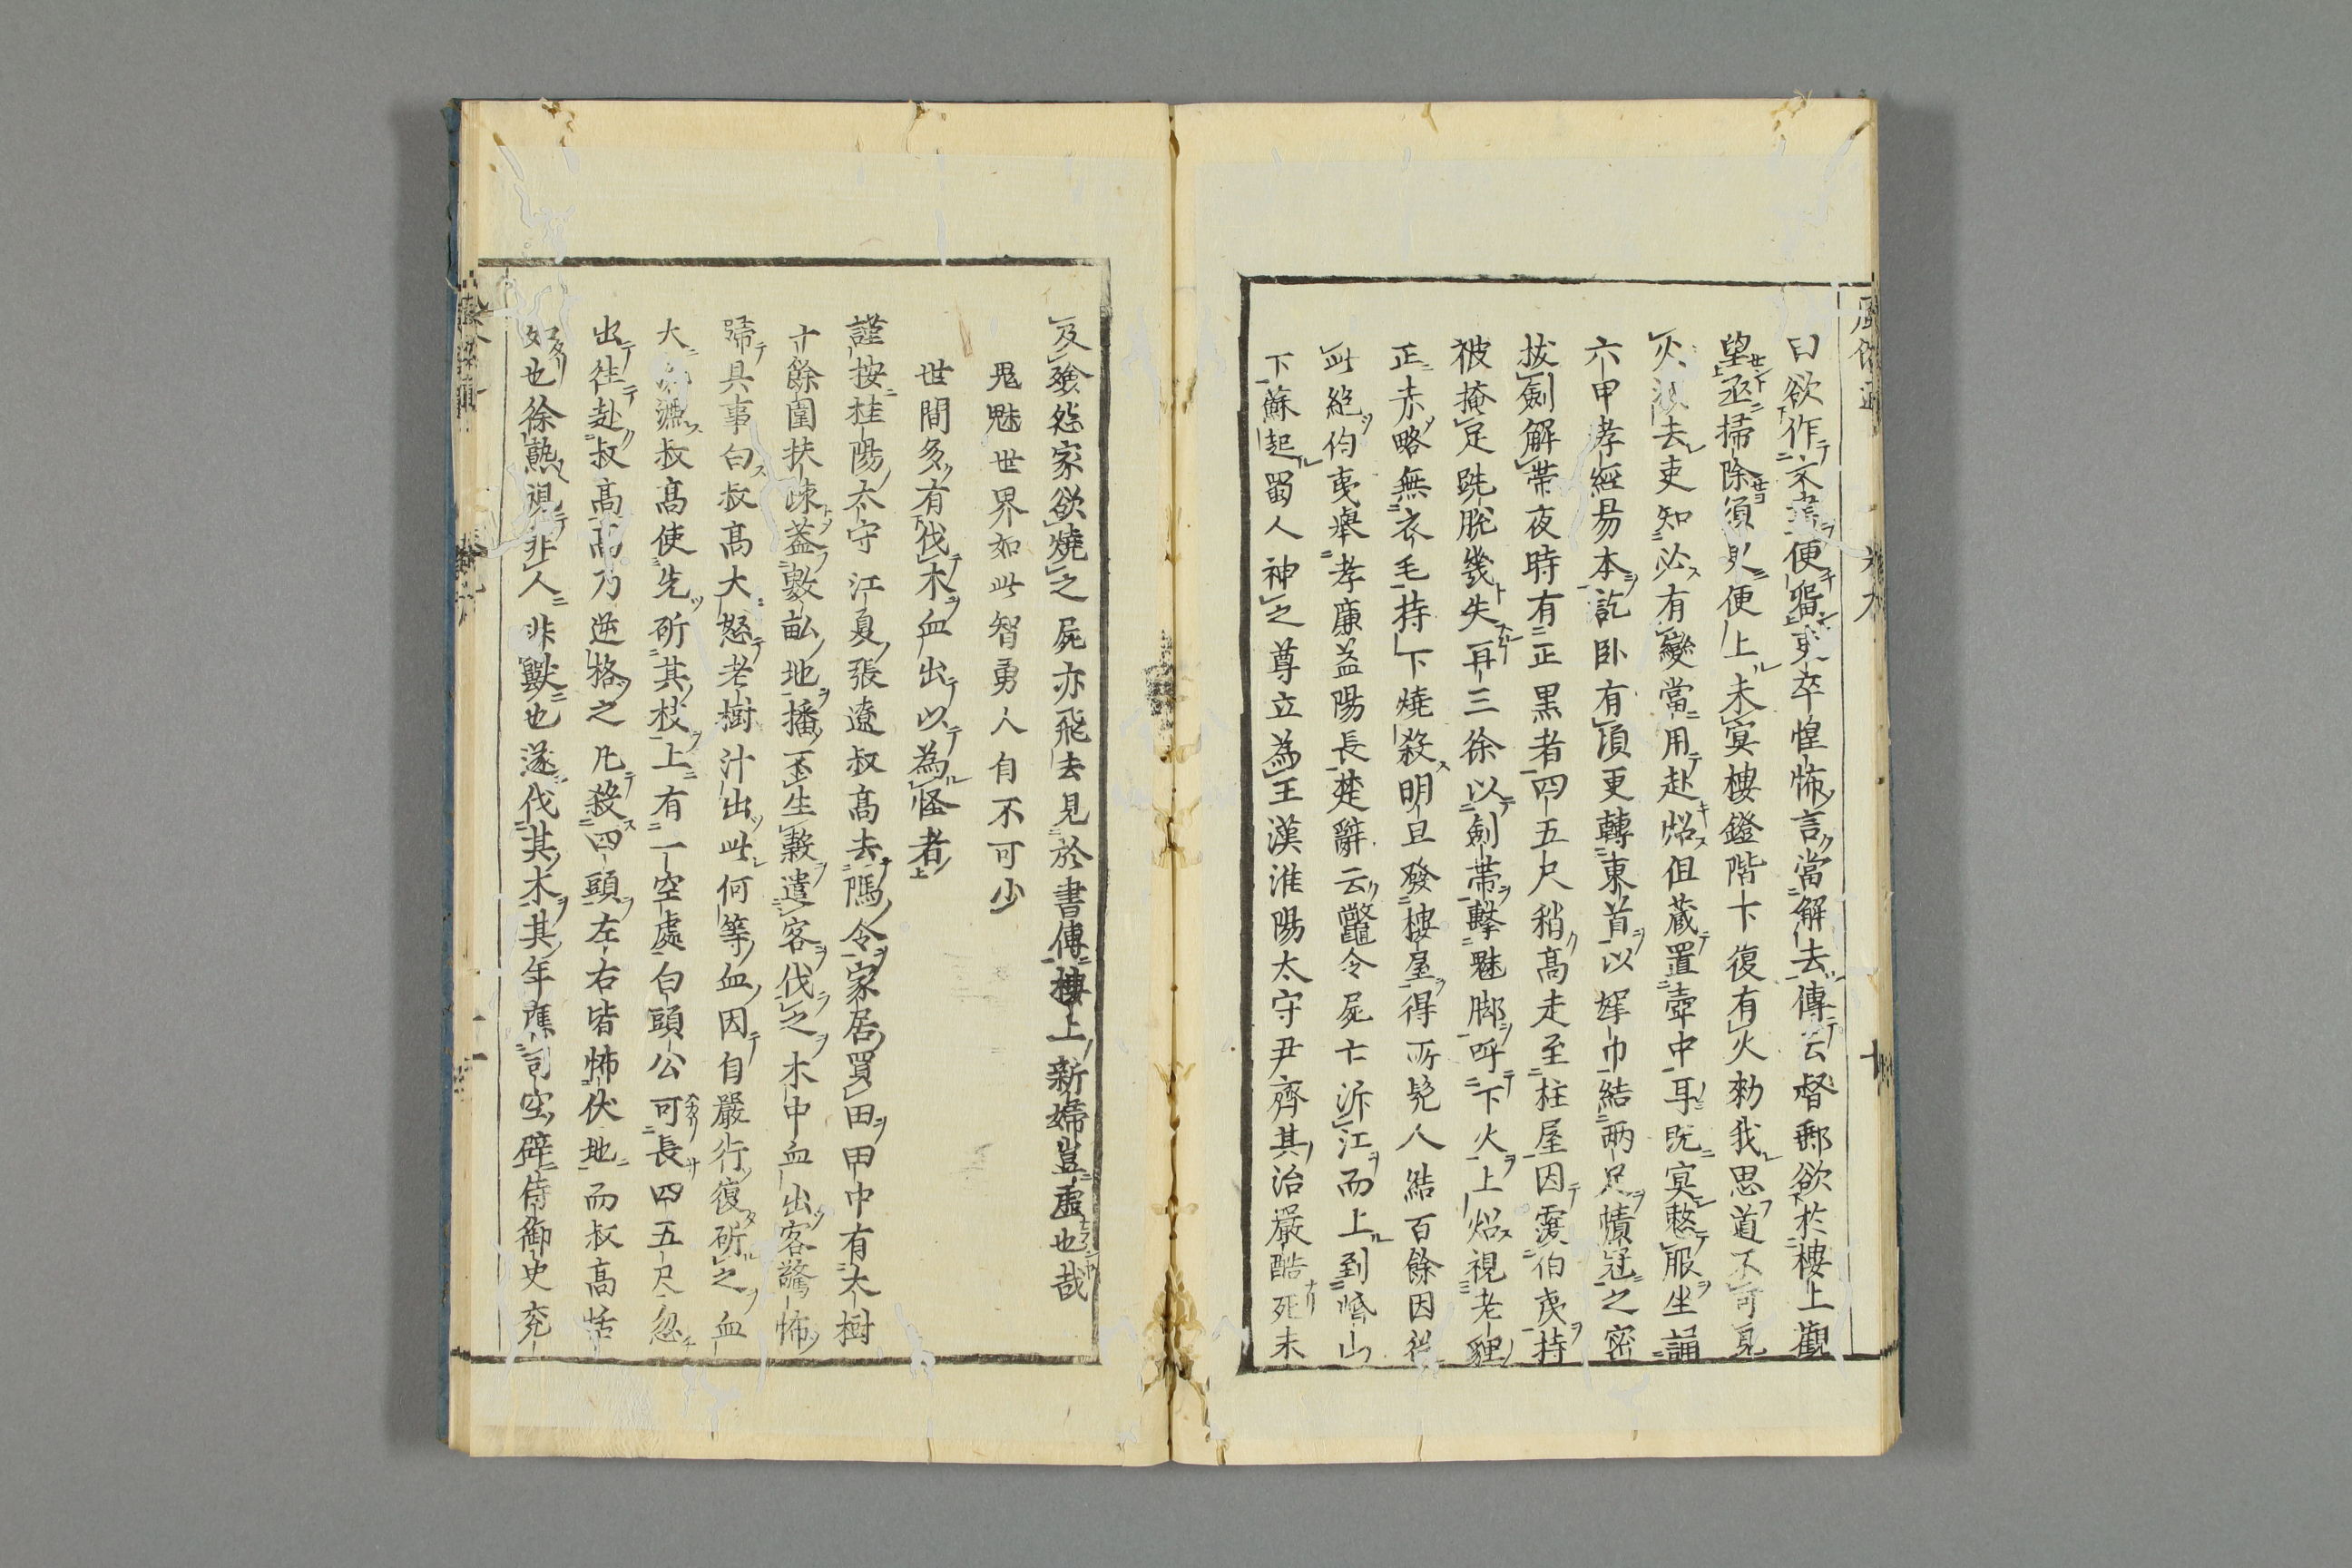 風俗通 卷九 十
曰欲作文書便留吏卒惶怖言當解去傳云督郵欲於樓上觀
望丞掃除須臾便上未冥樓鐙階下復有火勑我思道不可見
火滅去吏知必有變當用赴照但藏置壺中耳既冥整服坐誦
六甲孝經易本訖臥有頃更轉東首以挐巾結兩足幘冠之密
拔劍解帶夜時有正黑者四五尺稍高走至柱屋因覆伯夷持
被掩足跣脫幾失再三徐以劍帶擊魅脚呼下火上照視老狸
正赤略無衣毛持下燒殺明旦發樓屋得所髡人結百餘因從
此絕伯夷舉孝廉益陽長楚辭云鼈令屍亡泝江而上到𡺲山
下蘇起蜀人神之尊立為王漢淮陽太守尹齊其治嚴酷死未
及殮怨家欲燒之屍亦飛去見於書傳樓上新婦豈虛也哉
鬼魅世界如此智勇人自不可少
世間多有伐木血出以為怪者
謹按桂陽太守江夏張遼叔高去隱令家居買田田中有大樹
十餘圍扶疎蓋數畝地播不生穀遣客伐之木中血出客驚怖
歸具事白叔高大怒老樹汁出此何等血因自嚴行復斫之血
大流灑叔高使先斫其枝上有一空處白頭公可長四五尺忽
出往赴叔高高乃逆格之凡殺四頭左右皆怖伏地而叔高恬
如也徐熟視非人非獸也遂伐其木其年應司空辟侍御史兗